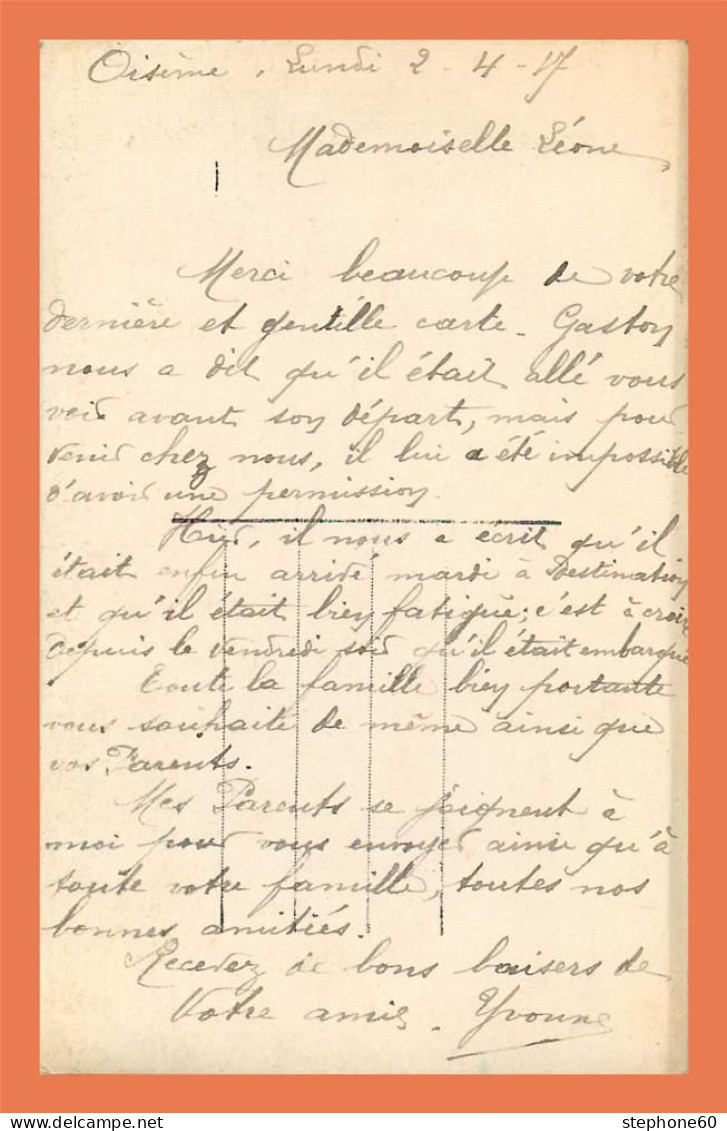 Oisème, Lundi 2-4-17
Mademoiselle Léone,
Merci beaucoup de votre
dernière et gentille carte. Gaston
nous a dit qu'il était allé vous
voir avant son départ, mais pour
venir chez nous, il lui a été impossible
d'avoir une permission.
Hier, il nous a écrit qu'il
était enfin arrivé mardi à destination
et qu'il était bien fatigué; c'est à croire
depuis le vendredi soir qu'il était embarqué
Toute la famille bien portante
vous souhaite de même ainsi que
vos Parents.
Mes Parents se joignent à
moi pour vous envoyer ainsi qu'à
toute votre famille, toutes nos
bonnes amitiés.
Recevez de bons baisers de
Votre amie. Yvonne
stephone60